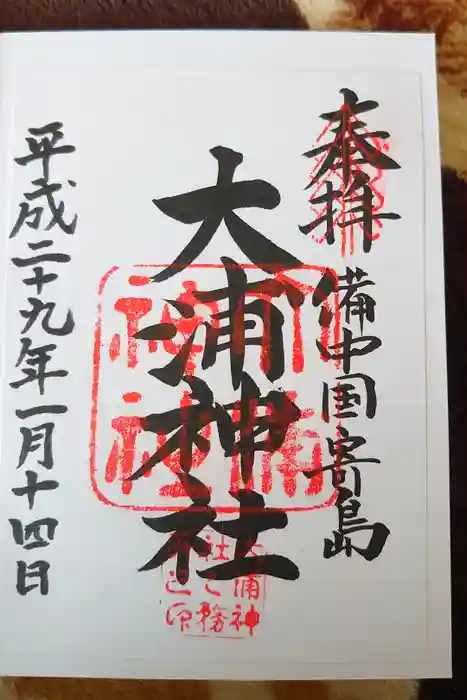 奉拝
備中国寄島
大浦神社
平成二十九年一月十四日
大浦
神社
大浦神
社之務